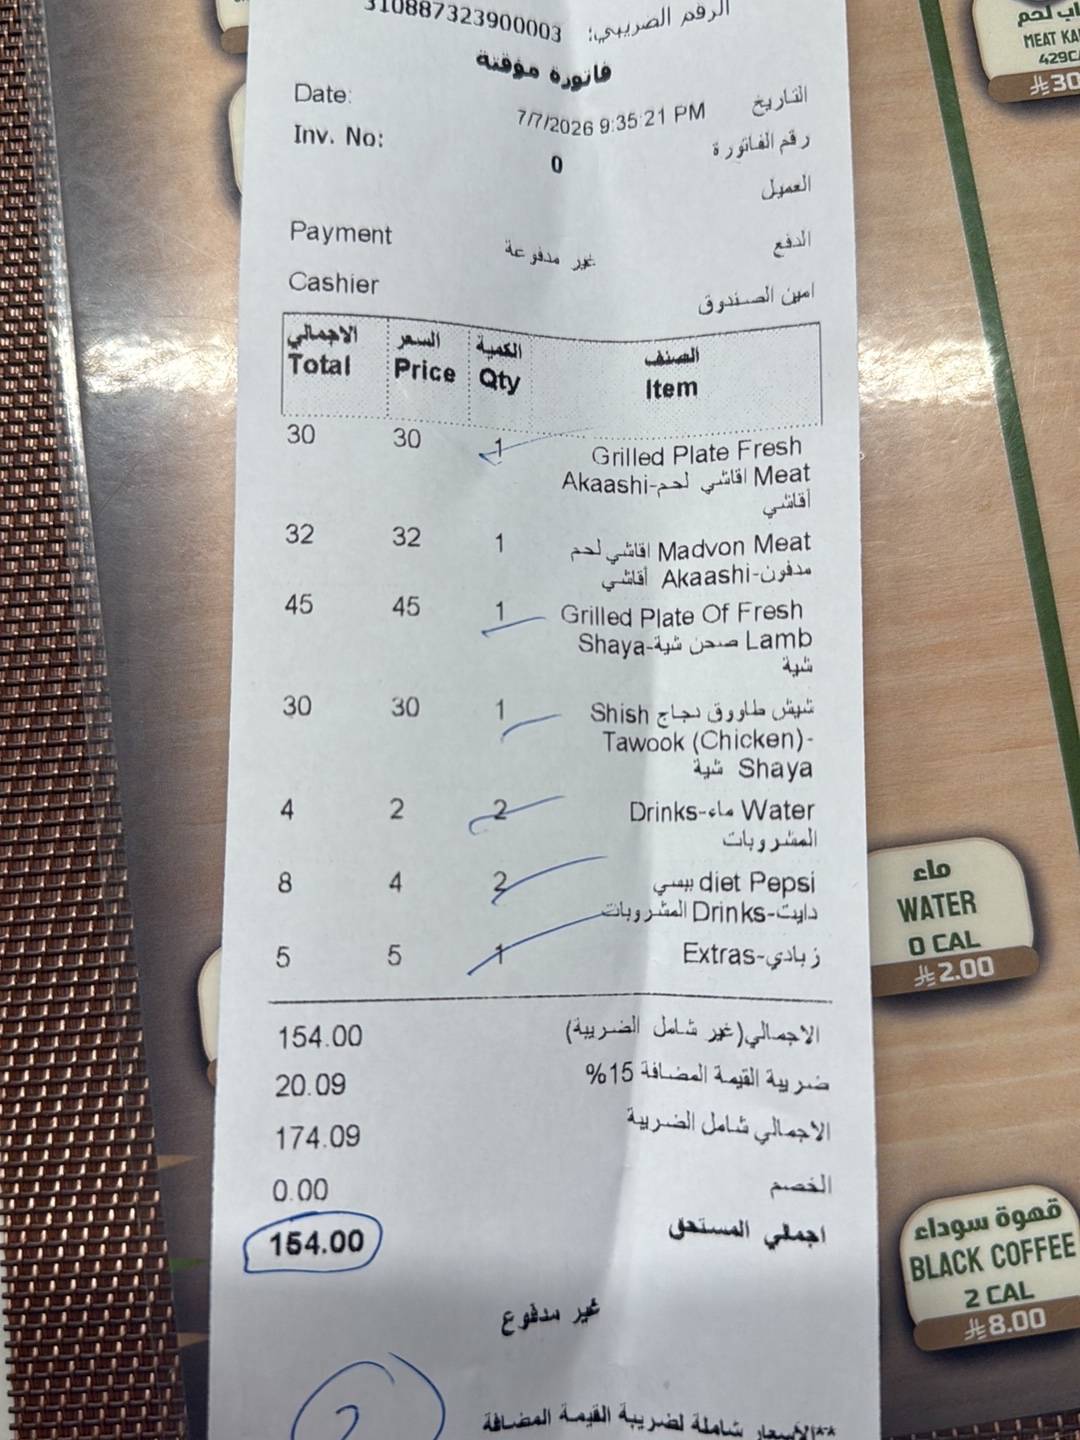 310887323900003 الرقم الضريبي:
فاتورة مؤقتة
Date: 7/7/2026 9:35:21 PM التاريخ
Inv. No: 0 رقم الفاتورة
العميل
Payment غير مدفوعة الدفع
Cashier امين الصندوق
الاجمالي السعر الكمية الصنف
Total Price Qty Item
30 30 1 Grilled Plate Fresh
Akaashi-اقاشي لحم Meat
أقاشي
32 32 1 اقاشي لحم Madvon Meat
أقاشي Akaashi-مدفون
45 45 1 Grilled Plate Of Fresh
Shaya-صحن شية Lamb
شية
30 30 1 Shish شيش طاووق دجاج
Tawook (Chicken)-
شية Shaya
4 2 2 Drinks-ماء Water
المشروبات
8 4 2 بيبسي diet Pepsi
المشروبات Drinks-دايت
5 5 1 Extras-زبادي
154.00 الاجمالي(غير شامل الضريبة)
20.09 ضريبة القيمة المضافة 15%
174.09 الاجمالي شامل الضريبة
0.00 الخصم
154.00 اجمالي المستحق
غير مدفوع
2
**الأسعار شاملة لضريبة القيمة المضافة
اب لحم
MEAT KA
429C
30
ماء
WATER
0 CAL
2.00
قهوة سوداء
BLACK COFFEE
2 CAL
8.00